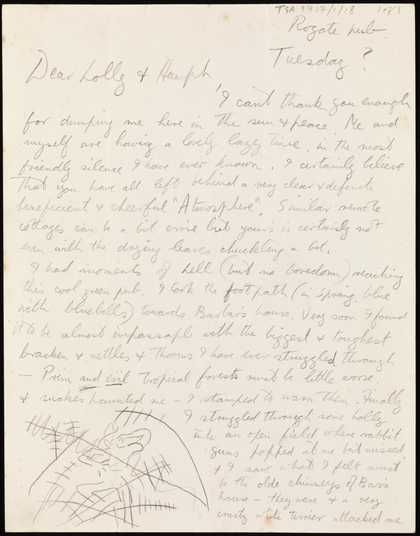 TGA 1 of 3
Rogate pub
Tuesday ?
Dear Lolly &
I can't thank you enough
for dumping me here in the sun & peace. Me and
myself are having a lovely lazy time. in the most
friendly silence I have ever known. I certainly believe
that you have all left behind a very clear & definite
beneficient & cheerful "Atmosphere". Similar remote
cottages can be a bit eerie but yours is certainly not
even with the dozing leaves chuckling a bit.
I had moments of hell (but no boredom) reaching
this cool green pub. I took the footpath (in spring blue
with bluebells) towards house. Very soon I found
it to be almost impassable with the biggest & toughest
bracken & nettles & thorns I have ever struggled through
— Prim and evil tropical forests must be little worse
& snakes haunted me — I stamped to warn them. Finally
I struggled through some holly
into an open field where rabbit
guns popped at me but missed
& I saw what I felt must
be the olde chimneys of
house — they were & a very
white terrier attacked me